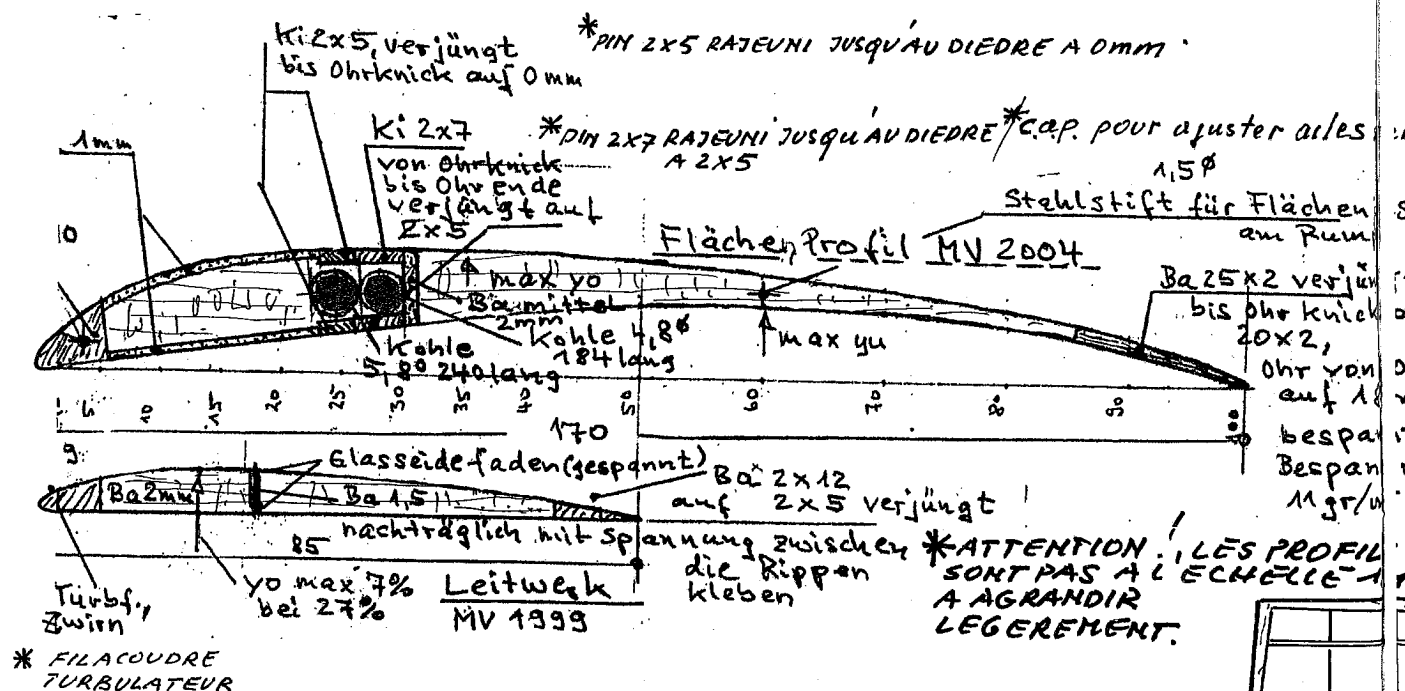 Ki 2x5, verjüngt
bis Ohrknick auf 0 mm
*PIN 2x5 RAJEUNI JUSQU'AU DIEDRE A 0mm
1mm
Ki 2x7
von Ohrknick
bis Ohrende
verjüngt auf
2x5
*PIN 2X7 RAJEUNI JUSQU'AU DIEDRE
A 2X5
*c.a.p. pour ajuster ailes
1,5ø
Stahlstift für Flächen
am Rum
10
Flächen Profil MV 2004
max yo
Ba mittel
2mm
Kohle 4,8ø
184 lang
Kohle
5,8ø 240 lang
max yu
Ba 25x2 verjün
bis Ohrknick
20x2,
Ohr von
auf 18
bespan
Bespan
11 gr/
5 10 15 20 25 30 35 40 50 60 70 80 90 100
170
9
Glasseidefaden (gespannt)
Ba 2mm
Ba 1,5
Ba 2x12
auf 2x5 verjüngt
nachträglich mit Spannung zwischen
die Rippen
kleben
85
yo max 7%
bei 27%
Leitwerk
MV 1999
Turbf.,
Zwirn
* FIL A COUDRE
TURBULATEUR
*ATTENTION !, LES PROFIL
SONT PAS A L'ECHELLE 1
A AGRANDIR
LEGEREMENT.